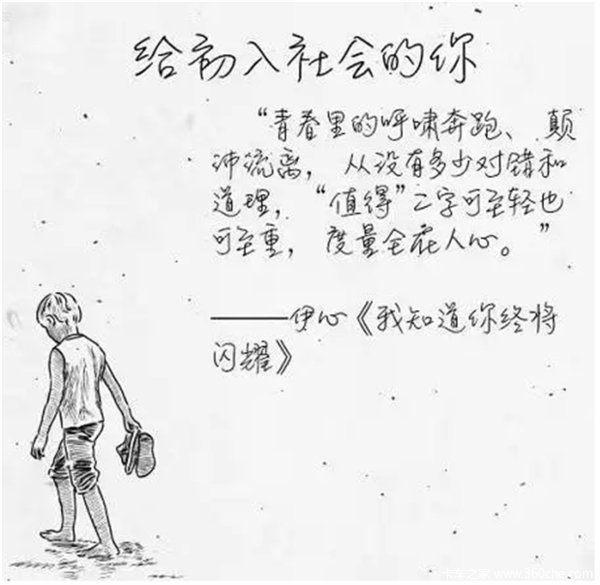 给初入社会的你
“青春里的呼啸奔跑、颠
沛流离，从没有多少对错和
道理，“值得”二字可至轻也
可至重，度量全在人心。”
———伊心《我知道你终将
闪耀》